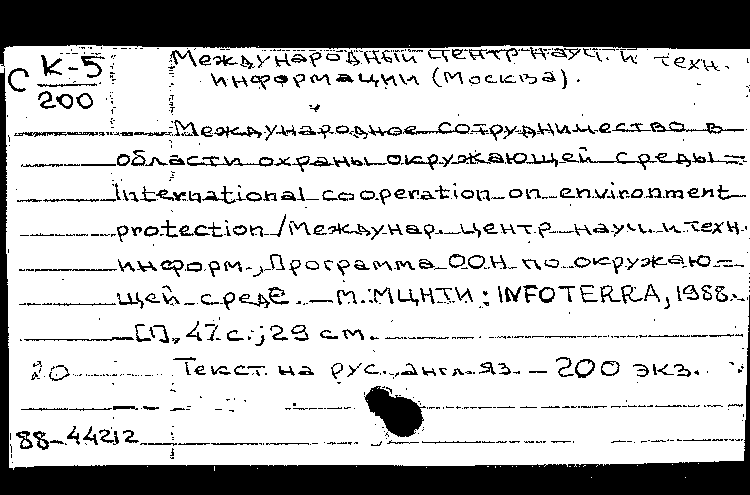 С К-5 Международный центр науч. и техн.
200 информации (Москва).
Международное сотрудничество в
области охраны окружающей среды =
International cooperation on environment
protection / Междунар. центр науч. и техн.
информ., Программа ООН по окружаю=
щей среде. — М.: МЦНТИ : INFOTERRA, 1988.
— [1], 47 с. ; 29 см.
20 Текст на рус., англ. яз. — 200 экз.
88-44212